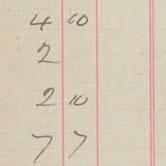 4 10
2
2 10
7 7